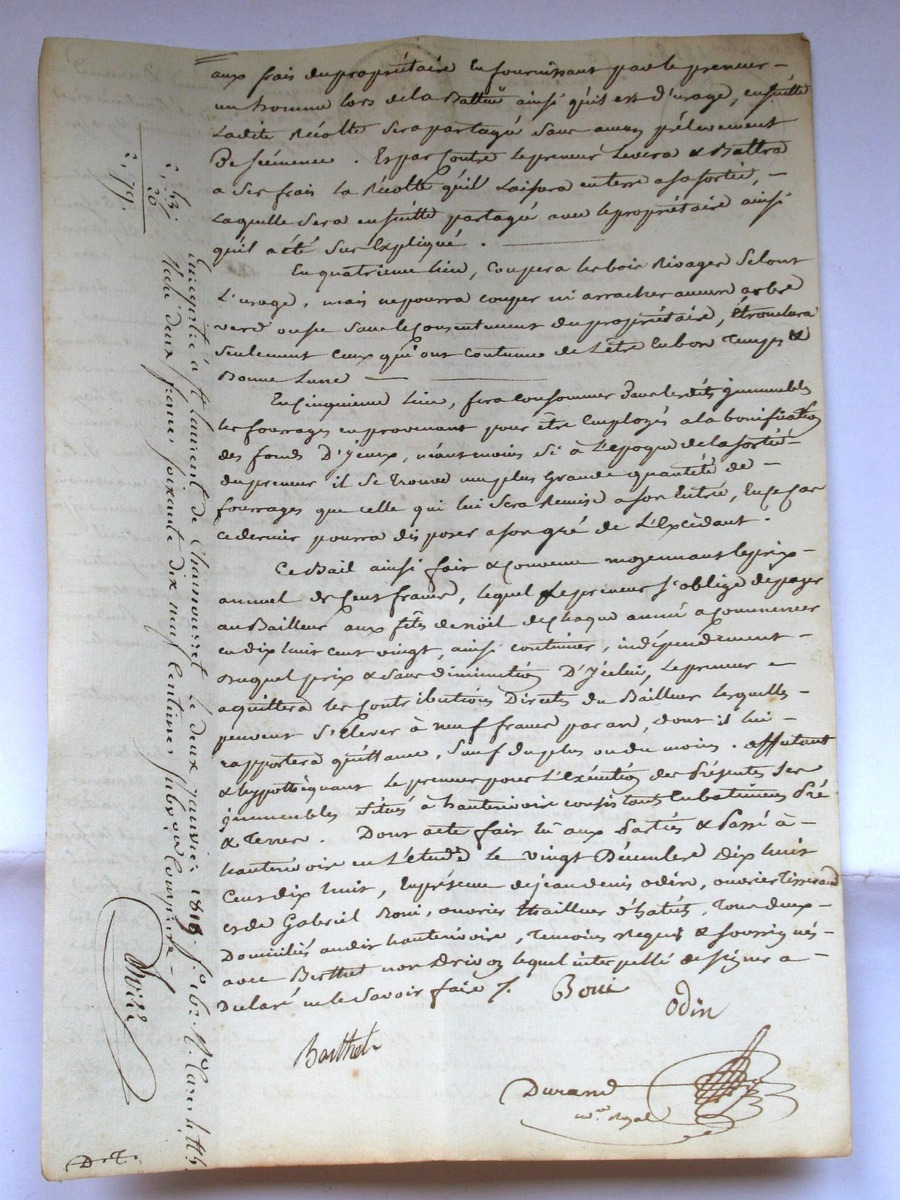 aux frais du propriétaire En fournissant par le preneur -
un homme lors de la Battue ainsi qu'il est d'usage, ensuitte
Ladite Récolte sera partagée sans aucun prélevement
De séémence. Et par contre le preneur Levera & Battra
a ses frais la Récolte qu'il Laissera en terre a sa sortie, -
Laquelle sera ensuitte partagée avec le propriétaire ainsi
qu'il a été sus Expliqué.
En quatrieme lieu, coupera les bois Rivages Selont
L'usage, mais ne pourra couper ni arracher aucun arbre
verd ou sec sans le Consentement du propriétaire, Etronchera
seulement Ceux qui ont coutume de L'être En bon Temps &
Bonne Lune
En cinquieme lieu, fera consommer dans lesdits immeubles
les fourrages en provenant pour être Employés a la bonification
des fonds D'yceux, néantmoins si à L'epoque de la sortie
du preneur il se trouve un plus Grande quantité de -
fourrages que celle qui lui sera Remise a son Entrée, En ce Cas
ce dernier pourra disposer a son gré de L'Excédant.
Ce Bail ainsi fait & convenu moyennant le prix -
annuel de Cent francs, lequel le preneur s'oblige de payer
au Bailleur aux fêtes de noël de chaque année a Commencer
en dix huit cent vingt, ainsi continuer, indépendement -
duquel prix & sans diminution D'ycelui, Le preneur -
aquittera les Contributions Directes du Bailleur lesquelles -
peuvent s'Elever à neuf francs par an, dont il lui -
rapportera quittance, sauf du plus ou du moins. affectant
& hyppothèquant Le preneur pour L'Exécution des Présentes ses
immeubles situés à hauterivoire consistant En batiments Pré
& Terres. Dont acte fait lû aux Parties & Passé à -
hauterivoire en L'étude le vingt Décembre dix huit
Cent dix huit, En présence de jean denis odin, ouvrier Tisserand
et de Gabriel Boni, ouvrier tailleur d'habits, Tous deux -
Domiciliés audit hauterivoire, Témoins requis & soussignés -
avec Berthet non Drivon lequel interpellé de signer a -
Déclaré ne le Savoir faire /.
Boni
odin
Barthet
Durand
no.re Royal
2, 53
26
2, 79.
Enregistré à St Laurent de Chamousset le deux janvier 1819. f.o 162 R.o
Reçu deux francs soixante dix neuf Centimes subv.on Comprise -
D. T.